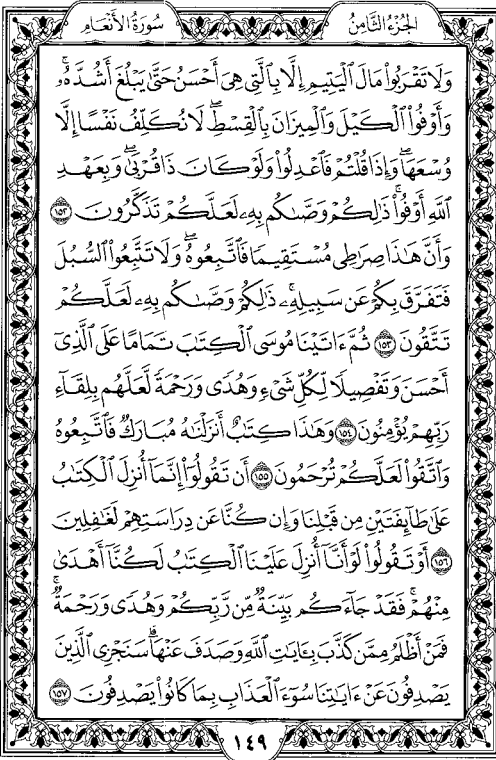 سُورَةُ الأَنْعَامِ
الجُزْءُ الثَّامِنُ
وَلَا تَقْرَبُوا۟ مَالَ ٱلْيَتِيمِ إِلَّا بِٱلَّتِى هِىَ أَحْسَنُ حَتَّىٰ يَبْلُغَ أَشُدَّهُۥۖ
وَأَوْفُوا۟ ٱلْكَيْلَ وَٱلْمِيزَانَ بِٱلْقِسْطِۖ لَا نُكَلِّفُ نَفْسًا إِلَّا
وُسْعَهَاۖ وَإِذَا قُلْتُمْ فَٱعْدِلُوا۟ وَلَوْ كَانَ ذَا قُرْبَىٰۖ وَبِعَهْدِ
ٱللَّهِ أَوْفُوا۟ۚ ذَٰلِكُمْ وَصَّىٰكُم بِهِۦ لَعَلَّكُمْ تَذَكَّرُونَ ١٥٢
وَأَنَّ هَٰذَا صِرَٰطِى مُسْتَقِيمًا فَٱتَّبِعُوهُۖ وَلَا تَتَّبِعُوا۟ ٱلسُّبُلَ
فَتَفَرَّقَ بِكُمْ عَن سَبِيلِهِۦۚ ذَٰلِكُمْ وَصَّىٰكُم بِهِۦ لَعَلَّكُمْ
تَتَّقُونَ ١٥٣ ثُمَّ ءَاتَيْنَا مُوسَى ٱلْكِتَٰبَ تَمَامًا عَلَى ٱلَّذِىٓ
أَحْسَنَ وَتَفْصِيلًا لِّكُلِّ شَىْءٍ وَهُدًى وَرَحْمَةً لَّعَلَّهُم بِلِقَآءِ
رَبِّهِمْ يُؤْمِنُونَ ١٥٤ وَهَٰذَا كِتَٰبٌ أَنزَلْنَٰهُ مُبَارَكٌ فَٱتَّبِعُوهُ
وَٱتَّقُوا۟ لَعَلَّكُمْ تُرْحَمُونَ ١٥٥ أَن تَقُولُوٓا۟ إِنَّمَآ أُنزِلَ ٱلْكِتَٰبُ
عَلَىٰ طَآئِفَتَيْنِ مِن قَبْلِنَا وَإِن كُنَّا عَن دِرَاسَتِهِمْ لَغَٰفِلِينَ
١٥٦ أَوْ تَقُولُوا۟ لَوْ أَنَّآ أُنزِلَ عَلَيْنَا ٱلْكِتَٰبُ لَكُنَّآ أَهْدَىٰ
مِنْهُمْۚ فَقَدْ جَآءَكُم بَيِّنَةٌ مِّن رَّبِّكُمْ وَهُدًى وَرَحْمَةٌۚ
فَمَنْ أَظْلَمُ مِمَّن كَذَّبَ بِـَٔايَٰتِ ٱللَّهِ وَصَدَفَ عَنْهَاۗ سَنَجْزِى ٱلَّذِينَ
يَصْدِفُونَ عَنْ ءَايَٰتِنَا سُوٓءَ ٱلْعَذَابِ بِمَا كَانُوا۟ يَصْدِفُونَ ١٥٧
١٤٩